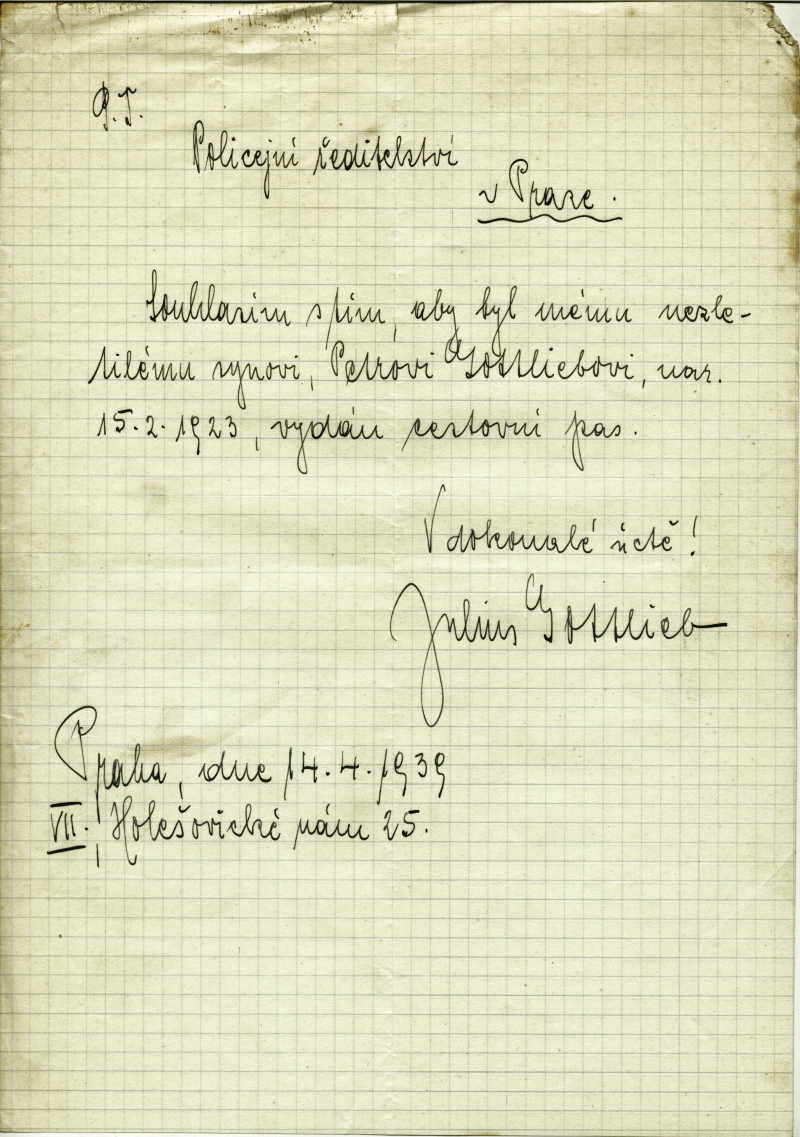 P.T.
Policejní ředitelství
v Praze.
Souhlasím s tím, aby byl mému nezle-
tilému synovi, Petrovi Gottliebovi, nar.
15.2.1923, vydán cestovní pas.
V dokonalé úctě!
Julius Gottlieb
Praha, dne 14.4.1939
VII. Holešovické nám 25.